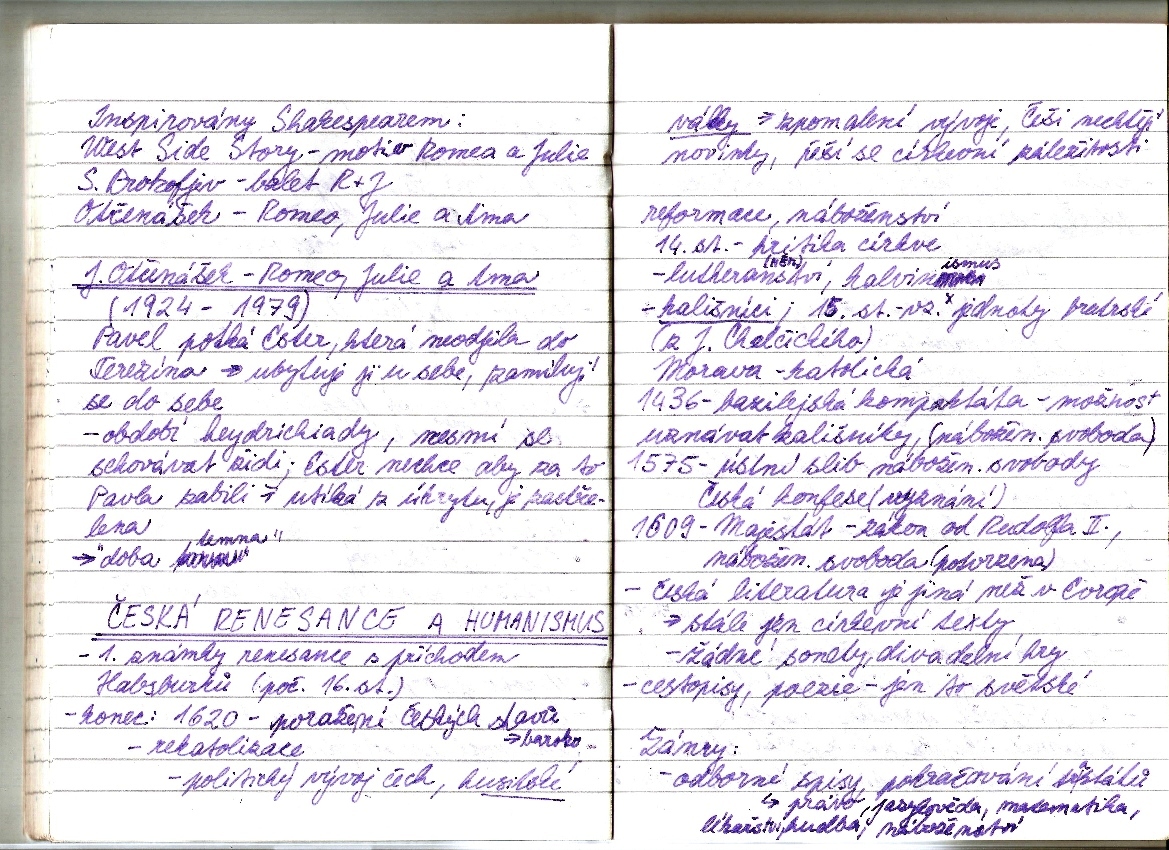 Inspirovány Shakespearem:
West Side Story - motiv Romea a Julie
S. Prokofjev - balet R+J
Otčenášek - Romeo, Julie a tma
J. Otčenášek - Romeo, Julie a tma
(1924 - 1979)
Pavel potká Ester, která neodjela do
Terezína → ubytuje ji u sebe, zamilují
se do sebe
- období heydrichiády, nesmí se
schovávat židi; Ester nechce aby za to
Pavla zabili → utíká z úkrytu, je zastře-
lena
→ "doba temna"
ČESKÁ RENESANCE A HUMANISMUS
- 1. známky renesance s příchodem
Habsburků (poč. 16. st.)
- konec: 1620 - poražení českých stavů
→ baroko
- rekatolizace
- politický vývoj čech, husitské
války → zpomalení vývoje, Češi nechtějí
novinky, řeší se církevní záležitosti
reformace, náboženství
14. st. - kritika církve
- lutheranství, (něm) kalvinismus
- kališníci; 15. st. - vz. x jednoty bratrské
(z J. Chelčického)
Morava - katolická
1436 - basilejská kompaktáta - možnost
uznávat kališníky, (nábožen. svoboda)
1575 - ústní slib nábožen. svobody
Česká konfese (vyznání)
1609 - Majestát - zákon od Rudolfa II.,
nábožen. svoboda (potvrzena)
- Česká literatura je jiná než v Evropě
→ stále jen církevní texty
- žádné sonety, divadelní hry
- cestopisy, poezie - jen to světské
Žánry:
- odborné spisy, pokračování
↳ právo, jazykověda, matematika,
lékařství, hudba, náboženství